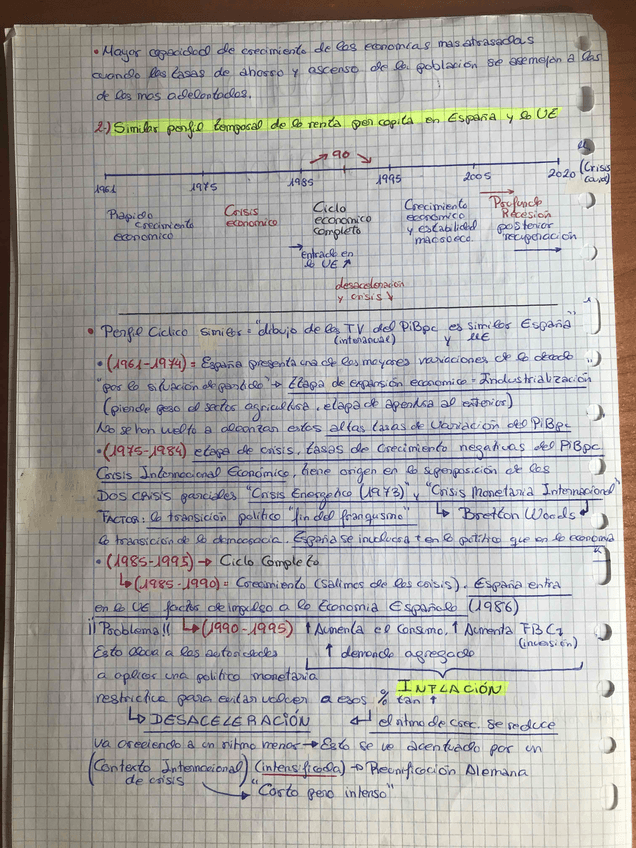 • Mayor capacidad de crecimiento de las economías mas atrasadas
cuando las tasas de ahorro y ascenso de la población se asemejan a las
de las mas adelantadas.
2.) Similar perfil temporal de la renta per capita en España y la UE
→ 90 →
1961 1975 1985 1995 2005 2020 (Crisis
covid)
Rápido crecimiento economico
Crisis economica
Ciclo economico completo
Crecimiento económico y estabilidad macroeco.
Profunda Recesión posterior recuperación
→ entrada en la UE ↗
desaceleración y crisis ↓
• Perfil Ciclico Similar = "dibujo de las TV del PiBpc es similar España"
(interanual) y UE
• (1961-1974) = España presenta una de las mayores variaciones de la decada
"por la situación de partida" → Etapa de expansión economica = Industrialización
(pierde peso el sector agricultura, etapa de apertura al exterior)
No se han vuelto a alcanzar estas altas tasas de variación del PiBpc
• (1975-1984) etapa de crisis, tasas de crecimiento negativas del PiBpc
Crisis Internacional Económica, tiene origen en la superposición de las
DOS CRISIS parciales "Crisis Energetica (1973)" y "Crisis Monetaria Internacional"
FACTOR: la transición politica "fin del franquismo" ↳ Bretton Woods
la transición de la democracia. España se involucra + en la politica que en la economia
• (1985-1995) → Ciclo Completo
↳ (1985-1990) = Crecimiento (salimos de las crisis). España entra
en la UE factor de impulso a la Economia Española (1986)
¡¡Problema!! ↳ (1990-1995) ↑ Aumenta el Consumo, ↑ Aumenta FBC
(inversión)
Esto lleva a las autoridades ↑ demanda agregada
a aplicar una politica monetaria
INFLACIÓN
restrictiva para evitar volver a esos % tan ↑
↳ DESACELERACIÓN ← el ritmo de crec. se reduce
va creciendo a un ritmo menor → Esto se ve acentuado por un
(Contexto Internacional) (intensificada) → Reunificación Alemana
de crisis
"Corto pero intenso"